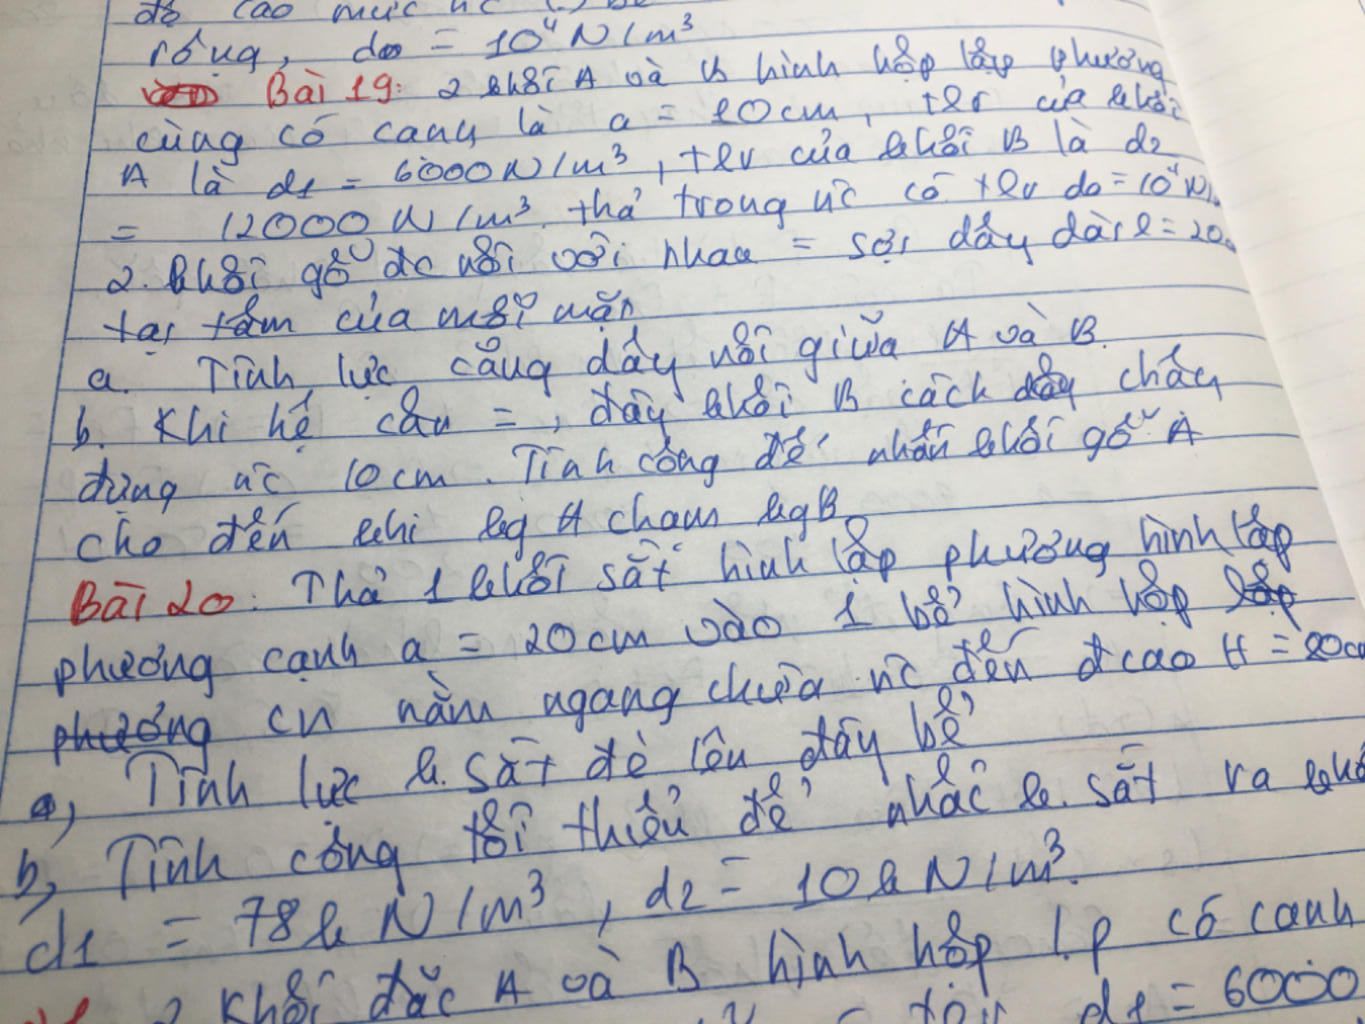 độ cao mực nc
rộng, do = 10⁴ N/m³
Bài 19: 2 khối A và B hình hộp lập phương
cùng có cạnh là a = 20cm, tlr của khối
A là d1 = 6000N/m³, tlr của khối B là d2
= 12000 N/m³ thả trong nc có tlr do = 10⁴ N/
2 khối gỗ đc nối với nhau = sợi dây dài l = 20
tại tâm của mỗi mặt
a. Tính lực căng dây nối giữa A và B.
b. Khi hệ cân =, đáy khối B cách đáy chậu
đựng nc 10cm. Tính công để nhấn khối gỗ A
cho đến khi kg A chạm kgB
Bài 20: Thả 1 khối sắt hình lập phương hình lập
phương cạnh a = 20cm vào 1 bể hình hộp lập
phương cn nằm ngang chứa nc đến đcao H = 80c
a, Tính lực k. sắt đè lên đáy bể
b, Tính công tối thiểu để nhấc k. sắt ra khỏ
d1 = 78k N/m³, d2 = 10k N/m³.
2 khối đặc A và B hình hộp l.p có cạnh
d1 = 6000